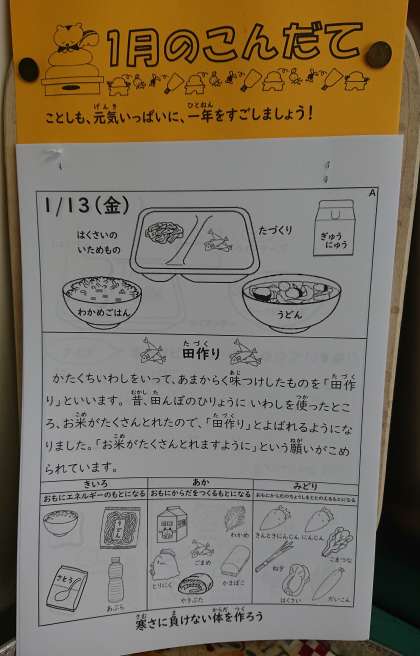 1月のこんだて
ことしも、元気いっぱいに、一年をすごしましょう!
げんき
いちねん
A
1/13(金)
はくさいの
いためもの
たづくり
ぎゅう
にゅう
わかめごはん
うどん
たづく
田作り
かたくちいわしをいって、あまからく味つけしたものを「田作
り」といいます。昔、田んぼのひりょうに いわしを使ったとこ
ろ、お米がたくさんとれたので、「田作り」とよばれるようにな
りました。「お米がたくさんとれますように」という願いがこめ
られています。
きいろ
おもにエネルギーのもとになる
うどん
さとう
あぶら
あか
おもにからだをつくるもとになる
わかめ
ごまめ
とりにく
やきぶた
かまぼこ
みどり
おもにからだのちょうしをととのえるもとになる
きんときにんじん
にんじん
こまつな
ねぎ
はくさい
だいこん
寒さに負けない体を作ろう